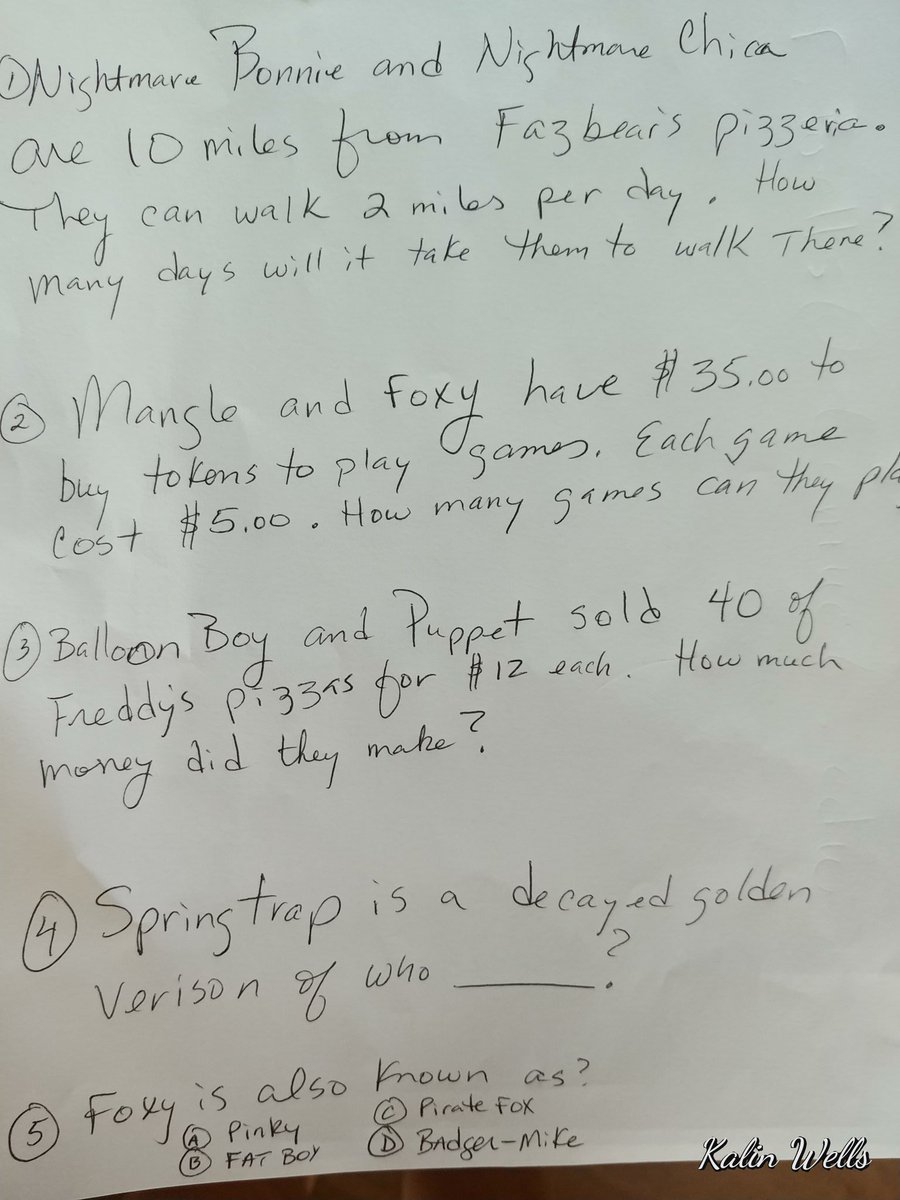 ① Nightmare Bonnie and Nightmare Chica
are 10 miles from Fazbear's pizzeria.
They can walk 2 miles per day. How
many days will it take them to walk There?
② Mangle and Foxy have $35.00 to
buy tokens to play games. Each game
cost $5.00. How many games can they pla
③ Balloon Boy and Puppet sold 40 of
Freddy's pizzas for $12 each. How much
money did they make?
④ Springtrap is a decayed golden
Verison of who ______?
⑤ Foxy is also known as?
Ⓐ Pinky Ⓒ Pirate Fox
Ⓑ FAT BOY Ⓓ BADger-Mike
Kalin Wells